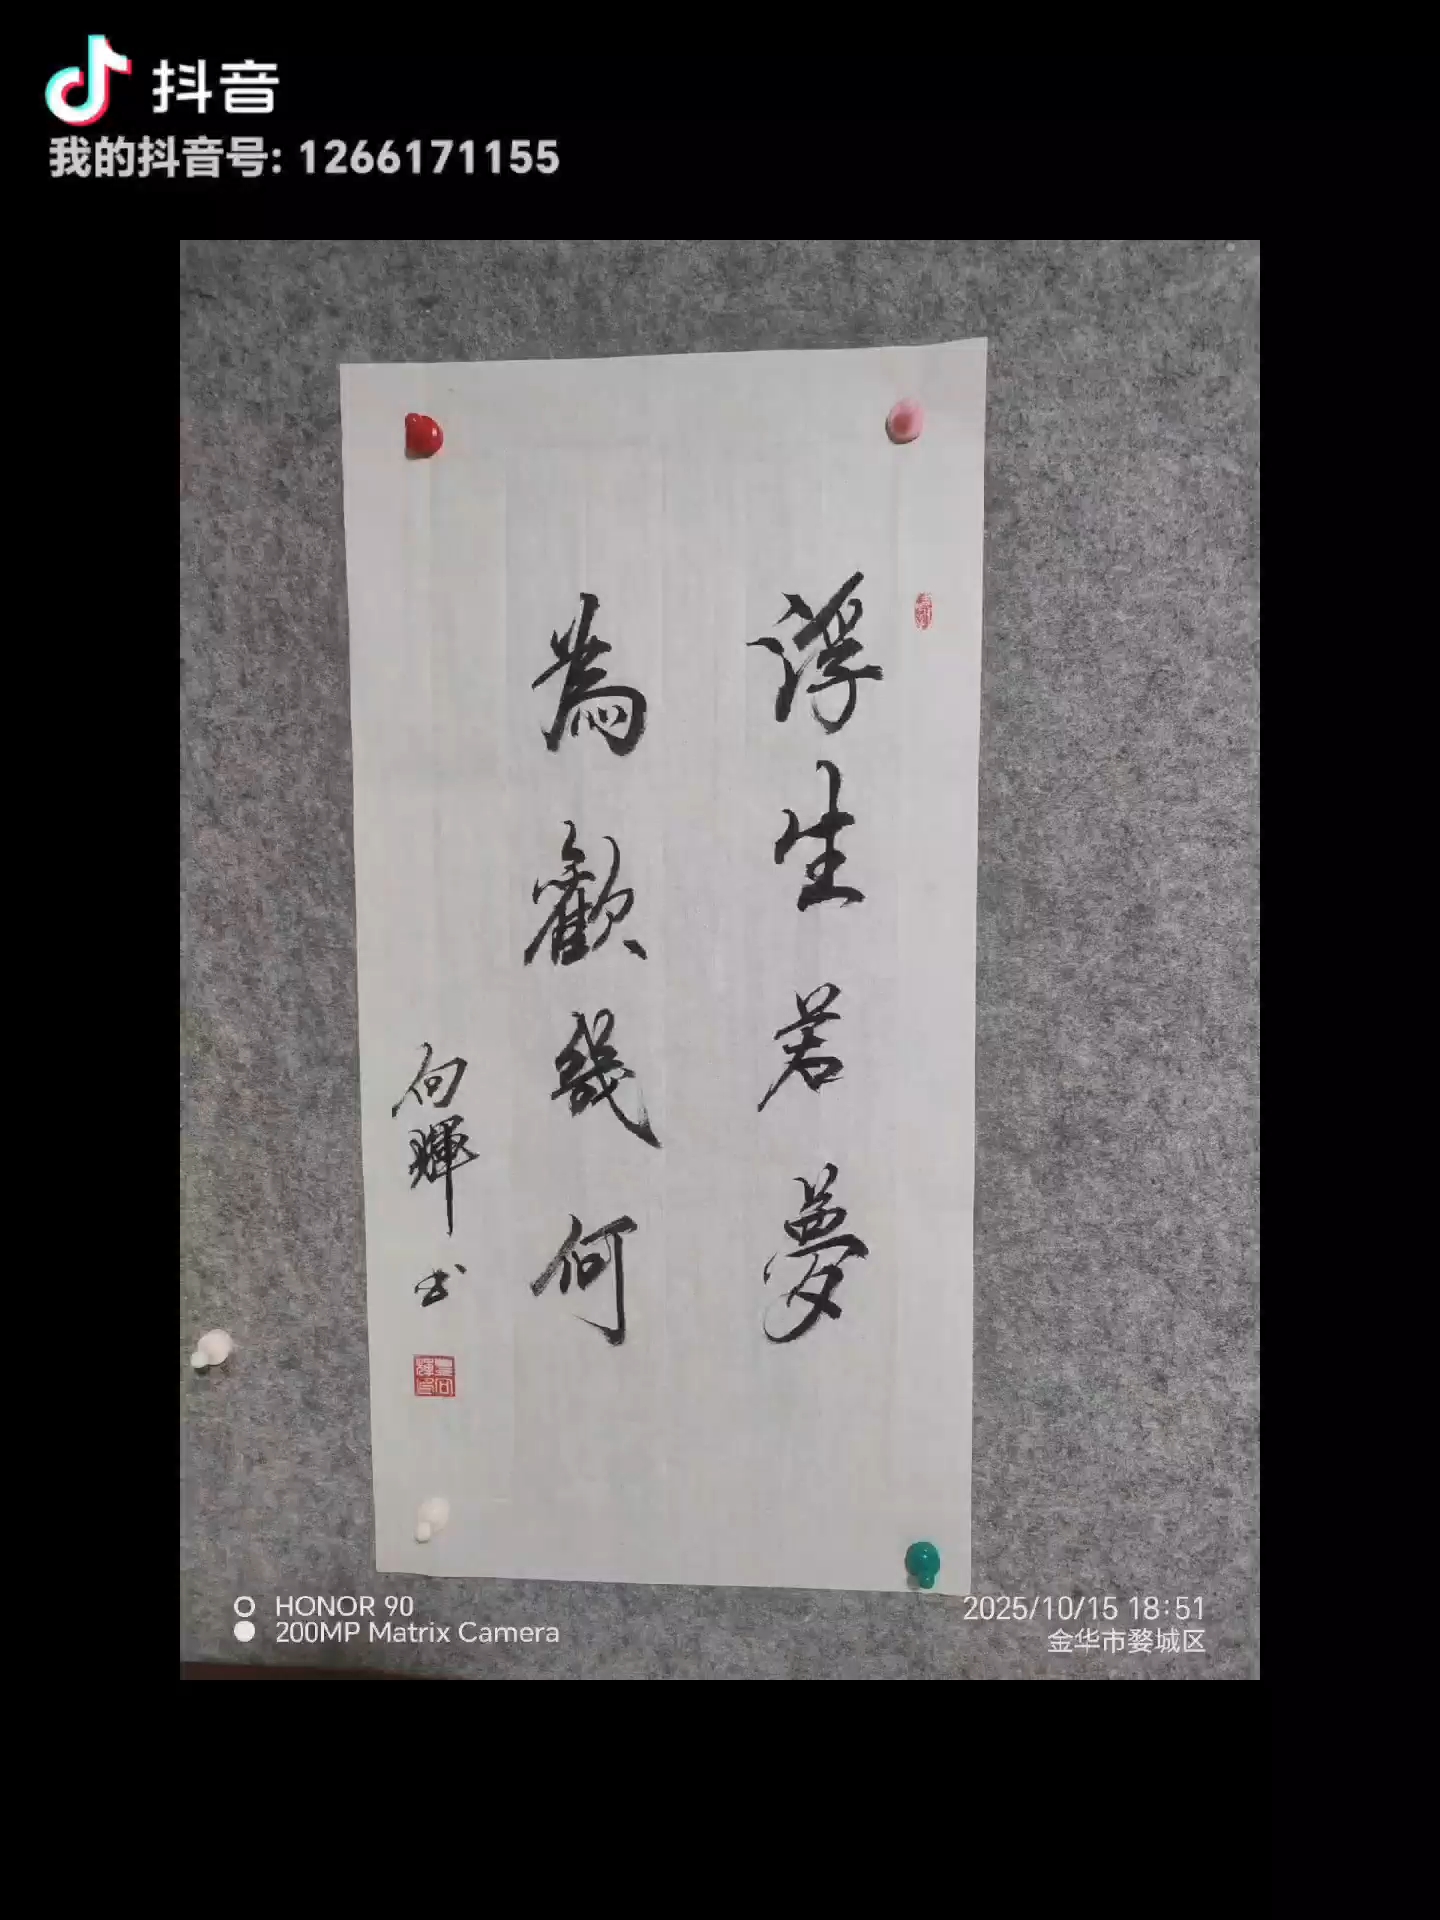 抖音
我的抖音号: 1266171155
浮生若夢
為歡幾何
向輝书
HONOR 90
200MP Matrix Camera
2025/10/15 18:51
金华市婺城区